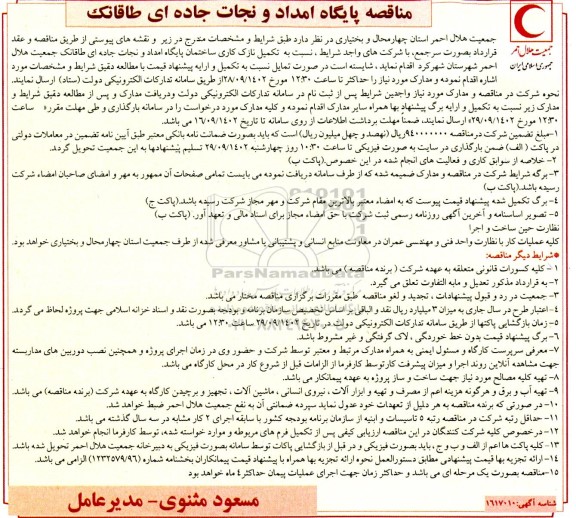 مناقصه پایگاه امداد و نجات جاده ای طاقانک
جمعیت هلال احمر
جمهوری اسلامی ایران
جمعیت هلال احمر استان چهارمحال و بختیاری در نظر دارد طبق شرایط و مشخصات مندرج در زیر و نقشه های پیوستی از طریق مناقصه و عقد
قرارداد بصورت سرجمع، با شرکت های واجد شرایط ، نسبت به تکمیل نازک کاری ساختمان پایگاه امداد و نجات جاده ای طاقانک جمعیت هلال
احمر شهرستان شهرکرد اقدام نماید ، شایسته است در صورت تمایل نسبت به تکمیل و ارایه پیشنهاد قیمت با مطالعه دقیق شرایط و مشخصات مورد
اشاره اقدام نموده و مدارک مورد نیاز را حداکثر تا ساعت ۱۲:۳۰ مورخ ۲۸/۰۹/۱۴۰۲ از طریق سامانه تدارکات الکترونیکی دولت (ستاد) ارسال نمایند.
نحوه شرکت در مناقصه و مدارک مورد نیاز: واجدین شرایط پس از ثبت نام در سامانه تدارکات الکترونیکی دولت و دریافت مدارک و پس از مطالعه دقیق شرایط و
مدارک زیر نسبت به تکمیل و ارایه برگ پیشنهاد بها همراه سایر مدارک اقدام نموده و کلیه مدارک مورد درخواست را در سامانه بارگذاری و طی مهلت مقرر« ساعت
۱۲:۳۰ مورخ ۲۹/۰۹/۱۴۰۲» ارسال نمایند، ضمناً مهلت برداشت اطلاعات از روی سامانه تا تاریخ ۱۶/۰۹/۱۴۰۲ می باشد.
۱-مبلغ تضمین شرکت در مناقصه ۹۴۰۰۰۰۰۰۰ریال (نهصد و چهل میلیون ریال) است که باید بصورت ضمانت نامه بانکی معتبر طبق آیین نامه تضمین در معاملات دولتی
در پاکت ( الف) ضمن بارگذاری در سایت به صورت فیزیکی تا ساعت ۱۰:۳۰ روز چهارشنبه ۲۹/۰۹/۱۴۰۲ تسلیم پیشنهادها به این جمعیت تحویل گردد.
۲- خلاصه از سوابق کاری و فعالیت های انجام شده در این خصوص.(پاکت ب)
۳-برگه شرایط شرکت در مناقصه و مدارک ضمیمه شده که از طرف سامانه دریافت نموده می بایست تمامی صفحات آن ممهور به مهر و امضای صاحبان امضاء شرکت
رسیده باشد.(پاکت ب)
۴- برگ تکمیل شده پیشنهاد قیمت پیوست که به امضاء معتبر بالاترین مقام شرکت و مهر مجاز شرکت رسیده باشد.(پاکت ج)
۵- تصویر اساسنامه و آخرین آگهی روزنامه رسمی ثبت شرکت با حق امضاء مجاز برای اسناد مالی و تعهد آور. (پاکت ب)
نظارت حین ساخت و اجرا
کلیه عملیات کار با نظارت واحد فنی و مهندسی عمران در معاونت منابع انسانی و پشتیبانی یا مشاور معرفی شده از طرف جمعیت استان چهارمحال و بختیاری خواهد بود.
●شرایط دیگر مناقصه:
۱ - کلیه کسورات قانونی متعلقه به عهده شرکت ( برنده مناقصه ) می باشد.
۲- به قرارداد مذکور تعدیل و مابه التفاوت تعلق می گیرد.
۳- جمعیت در رد و قبول پیشنهادات ، تجدید و لغو مناقصه طبق مقررات برگزاری مناقصه مختار می باشد.
۴- اعتبار طرح در سال جاری به میزان ۳ میلیارد ریال نقد و الباقی بر اساس تخصیص سازمان برنامه و بودجه بصورت نقد و اسناد خزانه اسلامی جهت پروژه لحاظ می گردد.
۵- زمان بازگشایی پاکتها از طریق سامانه تدارکات الکترونیکی دولت در تاریخ ۲۹/۰۹/۱۴۰۲ ساعت ۱۲:۳۰ می باشد.
۶- برگ پیشنهاد قیمت بدون خط خوردگی ، لاک گرفتگی و غیر مشروط باشد.
۷- معرفی سرپرست کارگاه و مسئول ایمنی به همراه مدارک مرتبط و معتبر توسط شرکت و حضور وی در زمان اجرای پروژه و همچنین نصب دوربین های مداربسته
جهت مشاهده آنلاین روند اجرا و میزان پیشرفت کار توسط کارفرما از الزامات قبل از شروع کار در محل کارگاه می باشد.
۸- تهیه کلیه مصالح مورد نیاز جهت ساخت و ساز پروژه به عهده پیمانکار می باشد.
۹- تهیه آب و برق و هرگونه هزینه اعم از مصرف و تهیه و ابزار آلات ، نیروی انسانی ، ماشین آلات ، تجهیز و برچیدن کارگاه به عهده شرکت (برنده مناقصه) می باشد.
۱۰- در صورتی که برنده مناقصه به هر دلیل از تعهدات خود عدول نماید سپرده ضمانتی آن به نفع جمعیت هلال احمر ضبط خواهد شد.
۱۱- حداقل رتبه شرکت در مناقصه رتبه ۵ تاسیسات و ابنیه از سازمان برنامه بودجه کشور با سابقه اجرای ۲ کار مشابه در سه سال گذشته می باشد.
۱۲- درخصوص کلیه شرکت کنندگان در این مناقصه ارزیابی کیفی پس از تکمیل فرم های مربوطه و موارد خواسته شده، توسط کارفرما انجام خواهد شد.
۱۳- کلیه پاکت ها اعم از الف و ب و ج ، باید بصورت فیزیکی و در قبل از بازگشایی پاکات توسط سامانه بصورت فیزیکی به دبیرخانه جمعیت هلال احمر تحویل شده باشد.
۱۴- ارائه تجزیه بها قیمت پیشنهادی مطابق دستورالعمل نحوه ارائه تجزیه بها همراه با پیشنهاد قیمت پیمانکاران بخشنامه شماره (۱۲۳۲۵۷۹/۹۶) الزامی می باشد.
۱۵-مناقصه بصورت یک مرحله ای می باشد و حداکثر زمان جهت اجرای عملیات پیمان حداکثر ۴ ماه خواهد بود
شناسه آگهی: ۱۶۱۷۰۱۰
مسعود مثنوی- مدیرعامل
ParsNamadData